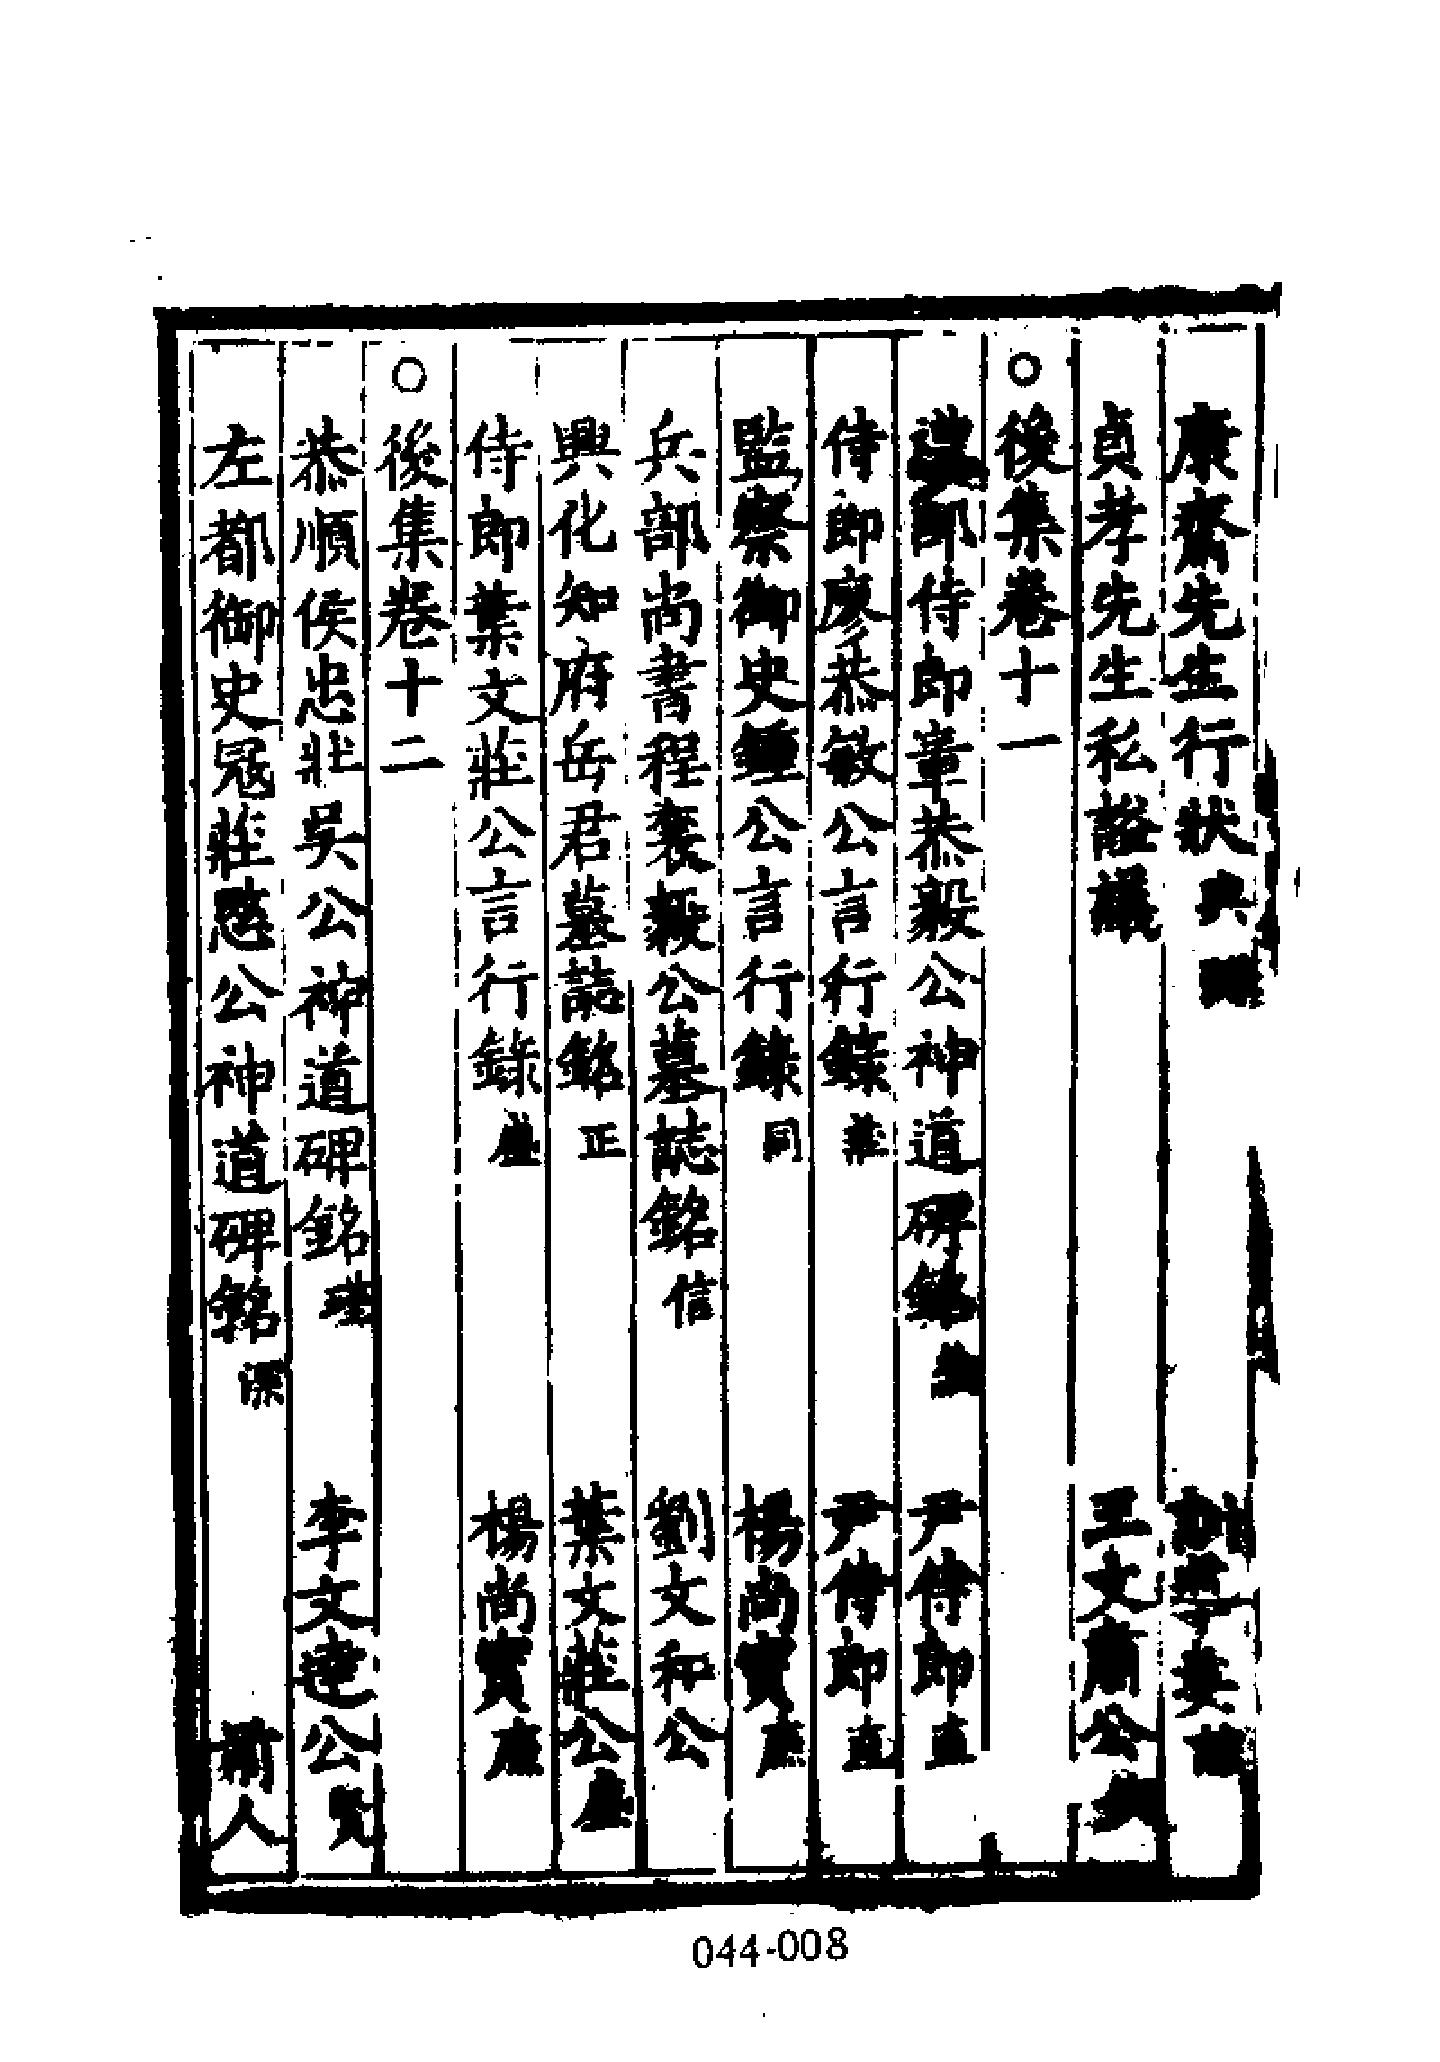 康齋先生行狀與 訓導婁諒
貞孝先生私諡議 王文肅公
○後集卷十一
部侍郎章恭毅公神道碑銘 尹侍郎直
侍郎廖恭敏公言行錄莊 尹侍郎直
監察御史鍾公言行錄同 楊尚寶廉
兵部尚書程襄毅公墓誌銘信 劉文和公
興化知府岳君墓誌銘正 葉文莊公盛
侍郎葉文莊公言行錄盛 楊尚寶廉
○後集卷十二
恭順侯忠壯吳公神道碑銘瑾 李文達公賢
左都御史寇莊愍公神道碑銘深 前人
044-008